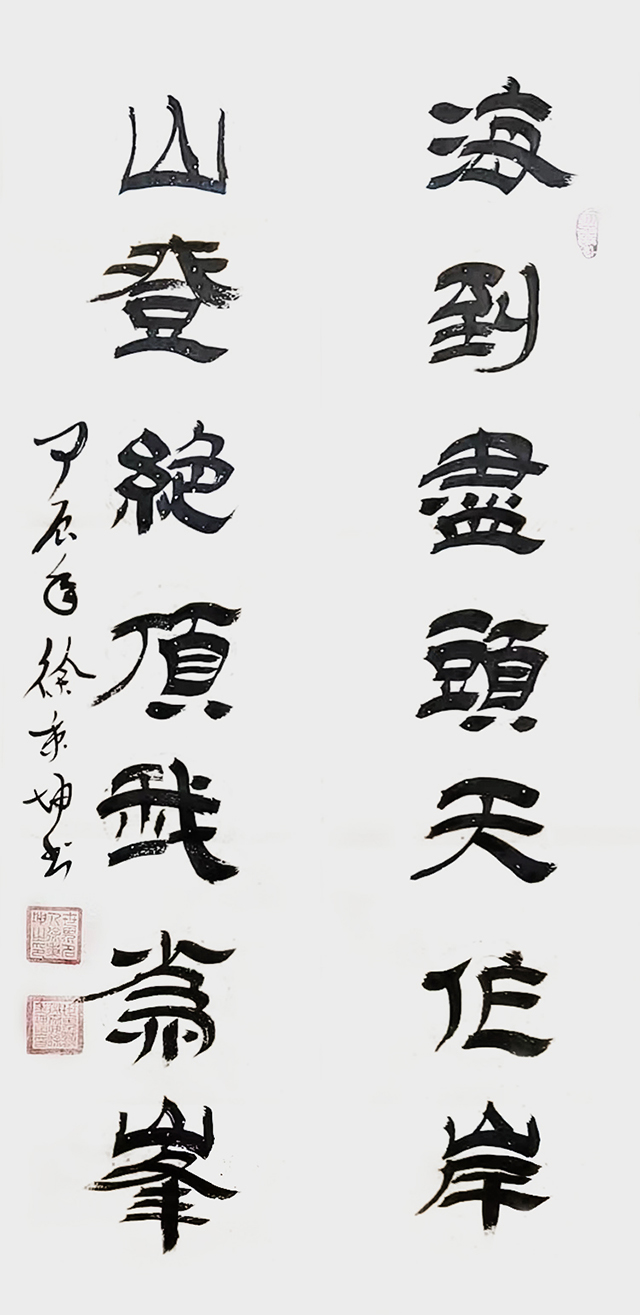 海到盡頭天作岸
山登絶頂我為峯
甲辰年徐坤书